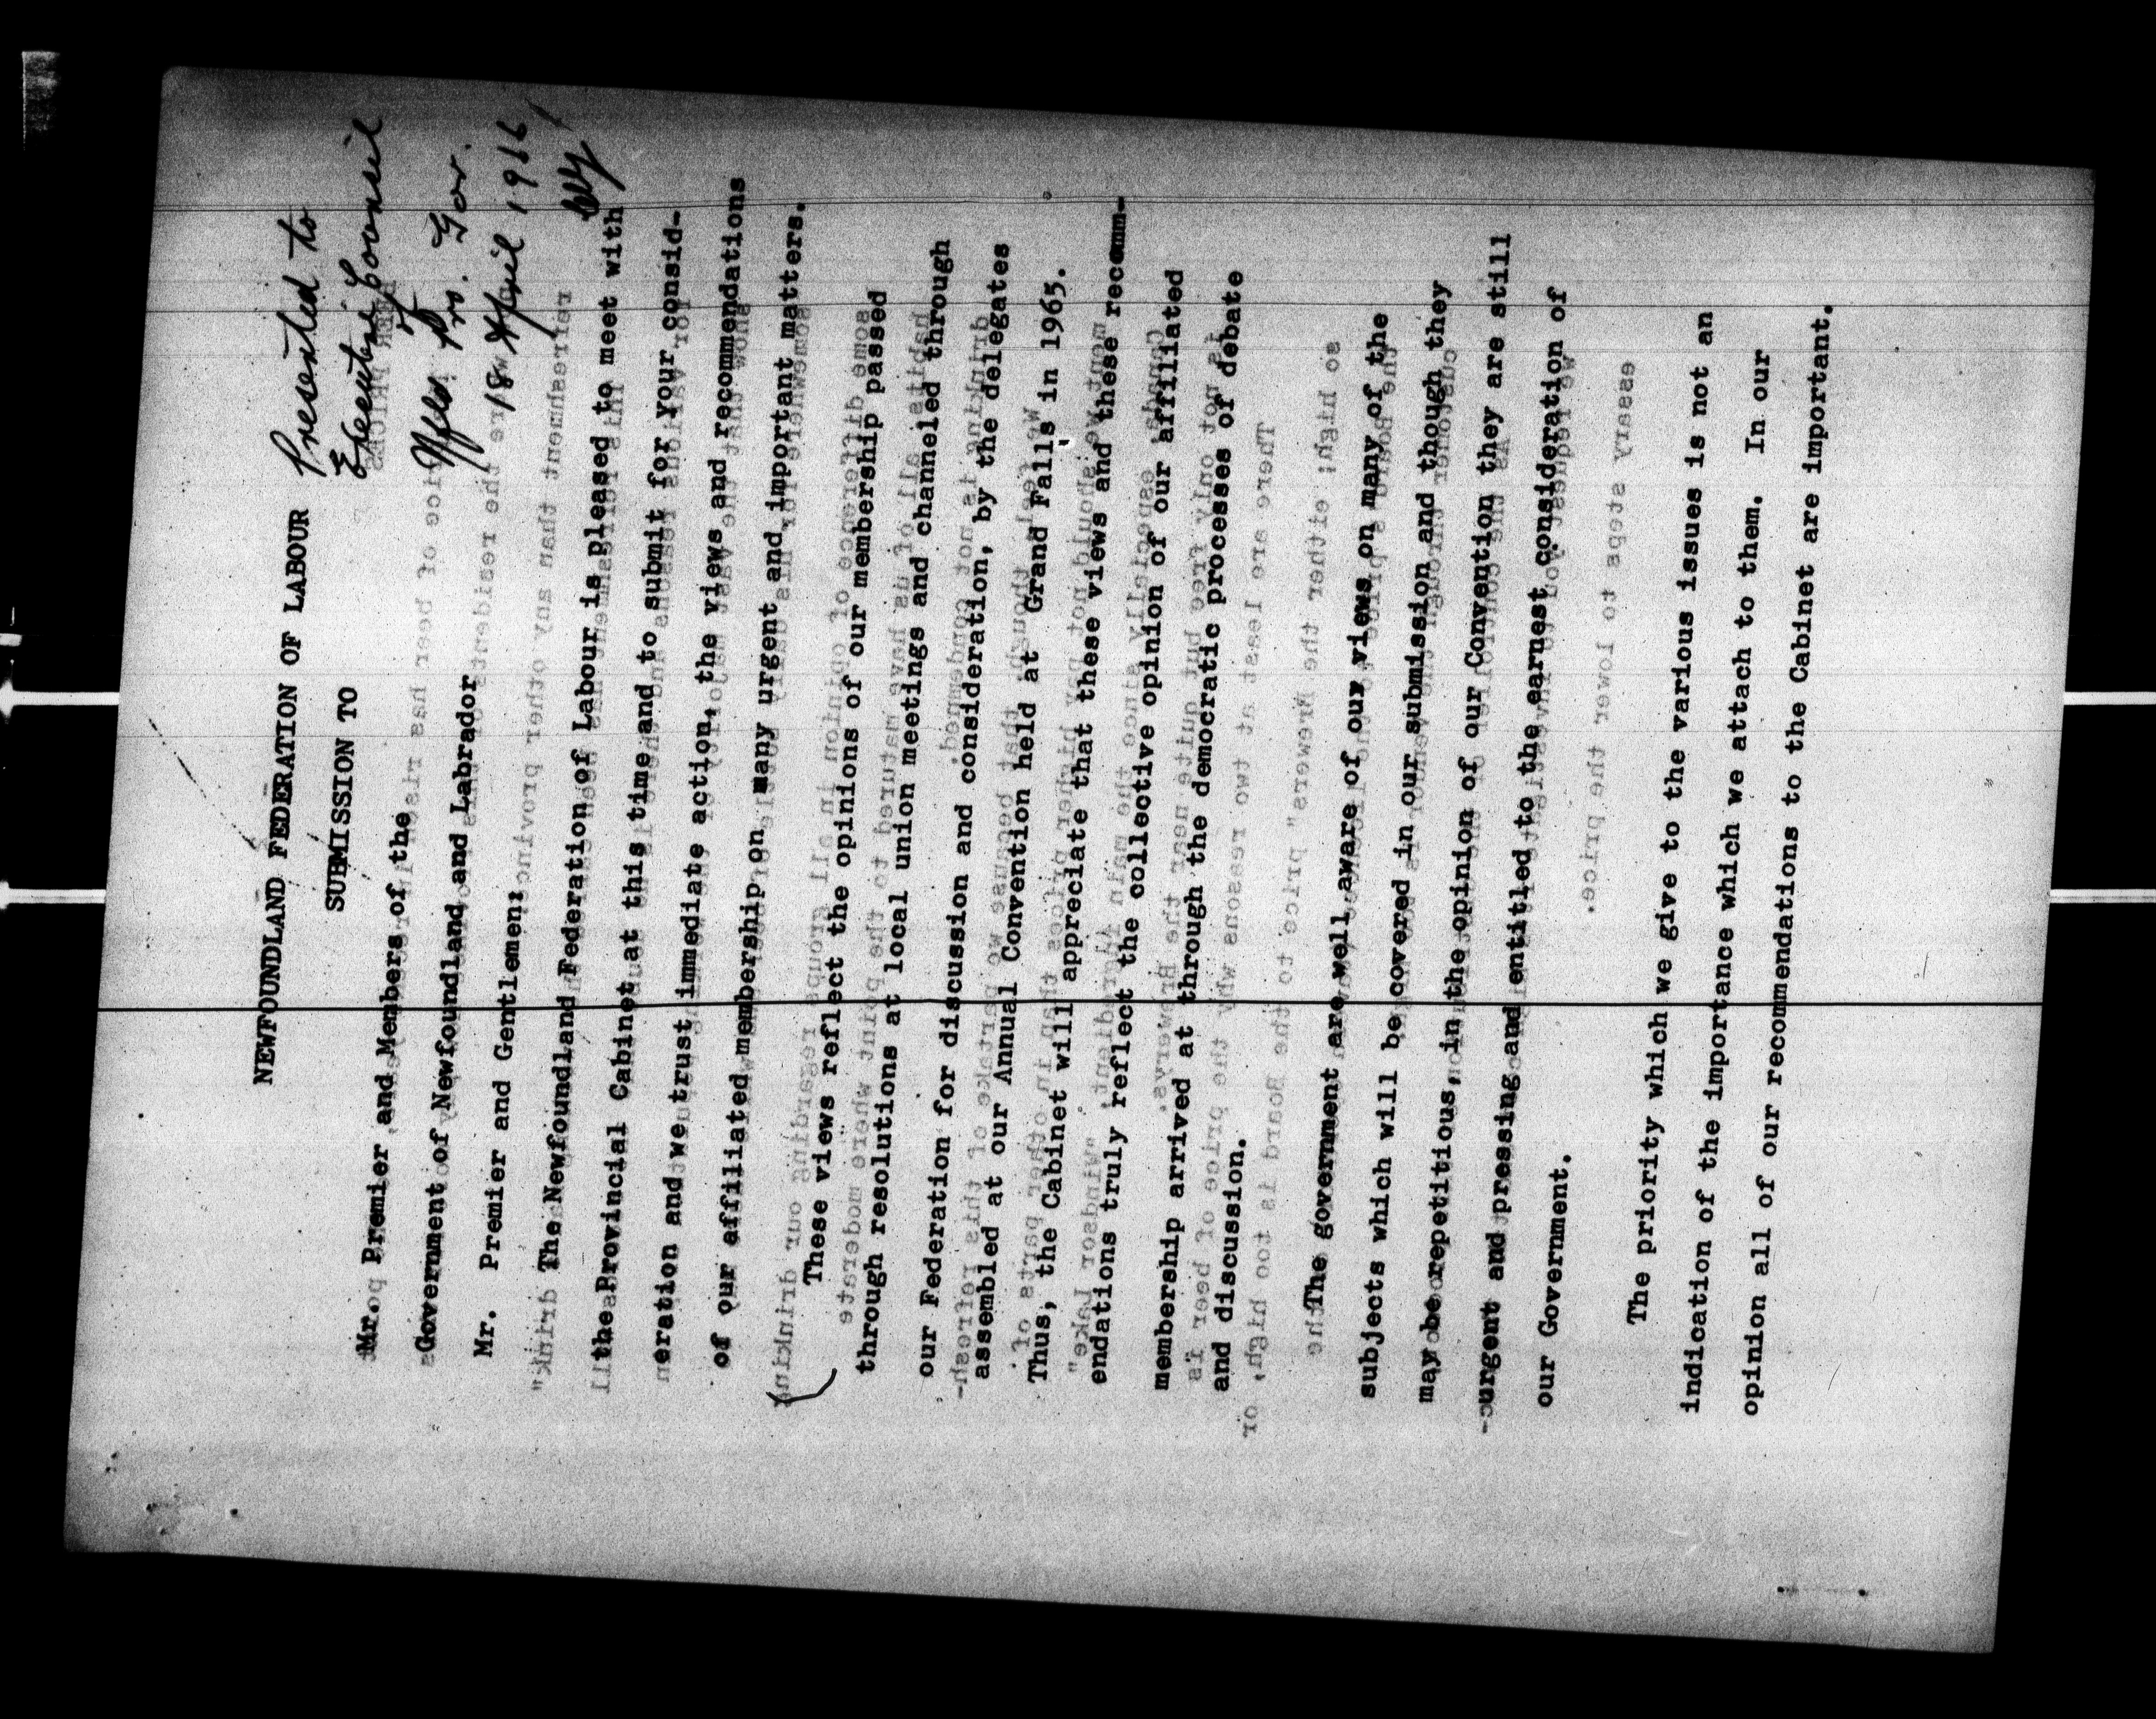 NEWFOUNDLAND FEDERATION OF LABOUR
Presented to
Executive Council
SUBMISSION TO
Nfld Gov.
18 April 1966
Mr. Premier and Members of the
Government of Newfoundland and Labrador
Mr. Premier and Gentlemen:
The Newfoundland Federation of Labour is pleased to meet with
the Provincial Cabinet at this time and to submit for your consid-
eration and we trust immediate action, the views and recommendations
of our affiliated membership on many urgent and important matters.
These views reflect the opinions of our membership passed
through resolutions at local union meetings and channeled through
our Federation for discussion and consideration, by the delegates
assembled at our Annual Convention held at Grand Falls in 1965.
Thus, the Cabinet will appreciate that these views and these recomm-
endations truly reflect the collective opinion of our affiliated
membership arrived at through the democratic processes of debate
and discussion.
The government are well aware of our views on many of the
subjects which will be covered in our submission and though they
may be repetitious, in the opinion of our Convention they are still
urgent and pressing and entitled to the earnest consideration of
our Government.
The priority which we give to the various issues is not an
indication of the importance which we attach to them. In our
opinion all of our recommendations to the Cabinet are important.